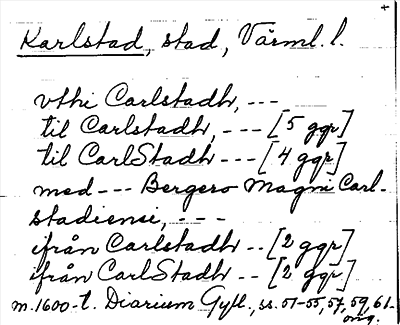 Karlstad, stad, Värml. l.
vthi Carlstadh, ---
til Carlstadh, --- [5 ggr]
til CarlStadh --- [4 ggr]
med --- Bergero Magni Carl-
stadiensi, ---
ifrån Carlstadh -- [2 ggr]
ifrån CarlStadh -- [2 ggr]
m. 1600-t. Diarium Gyll., ss. 51-55, 57, 59, 61.
orig.